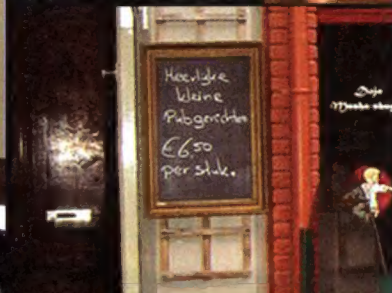 Heerlijke
kleine
Pubgerechten
€6,50
per stuk.
Dojo